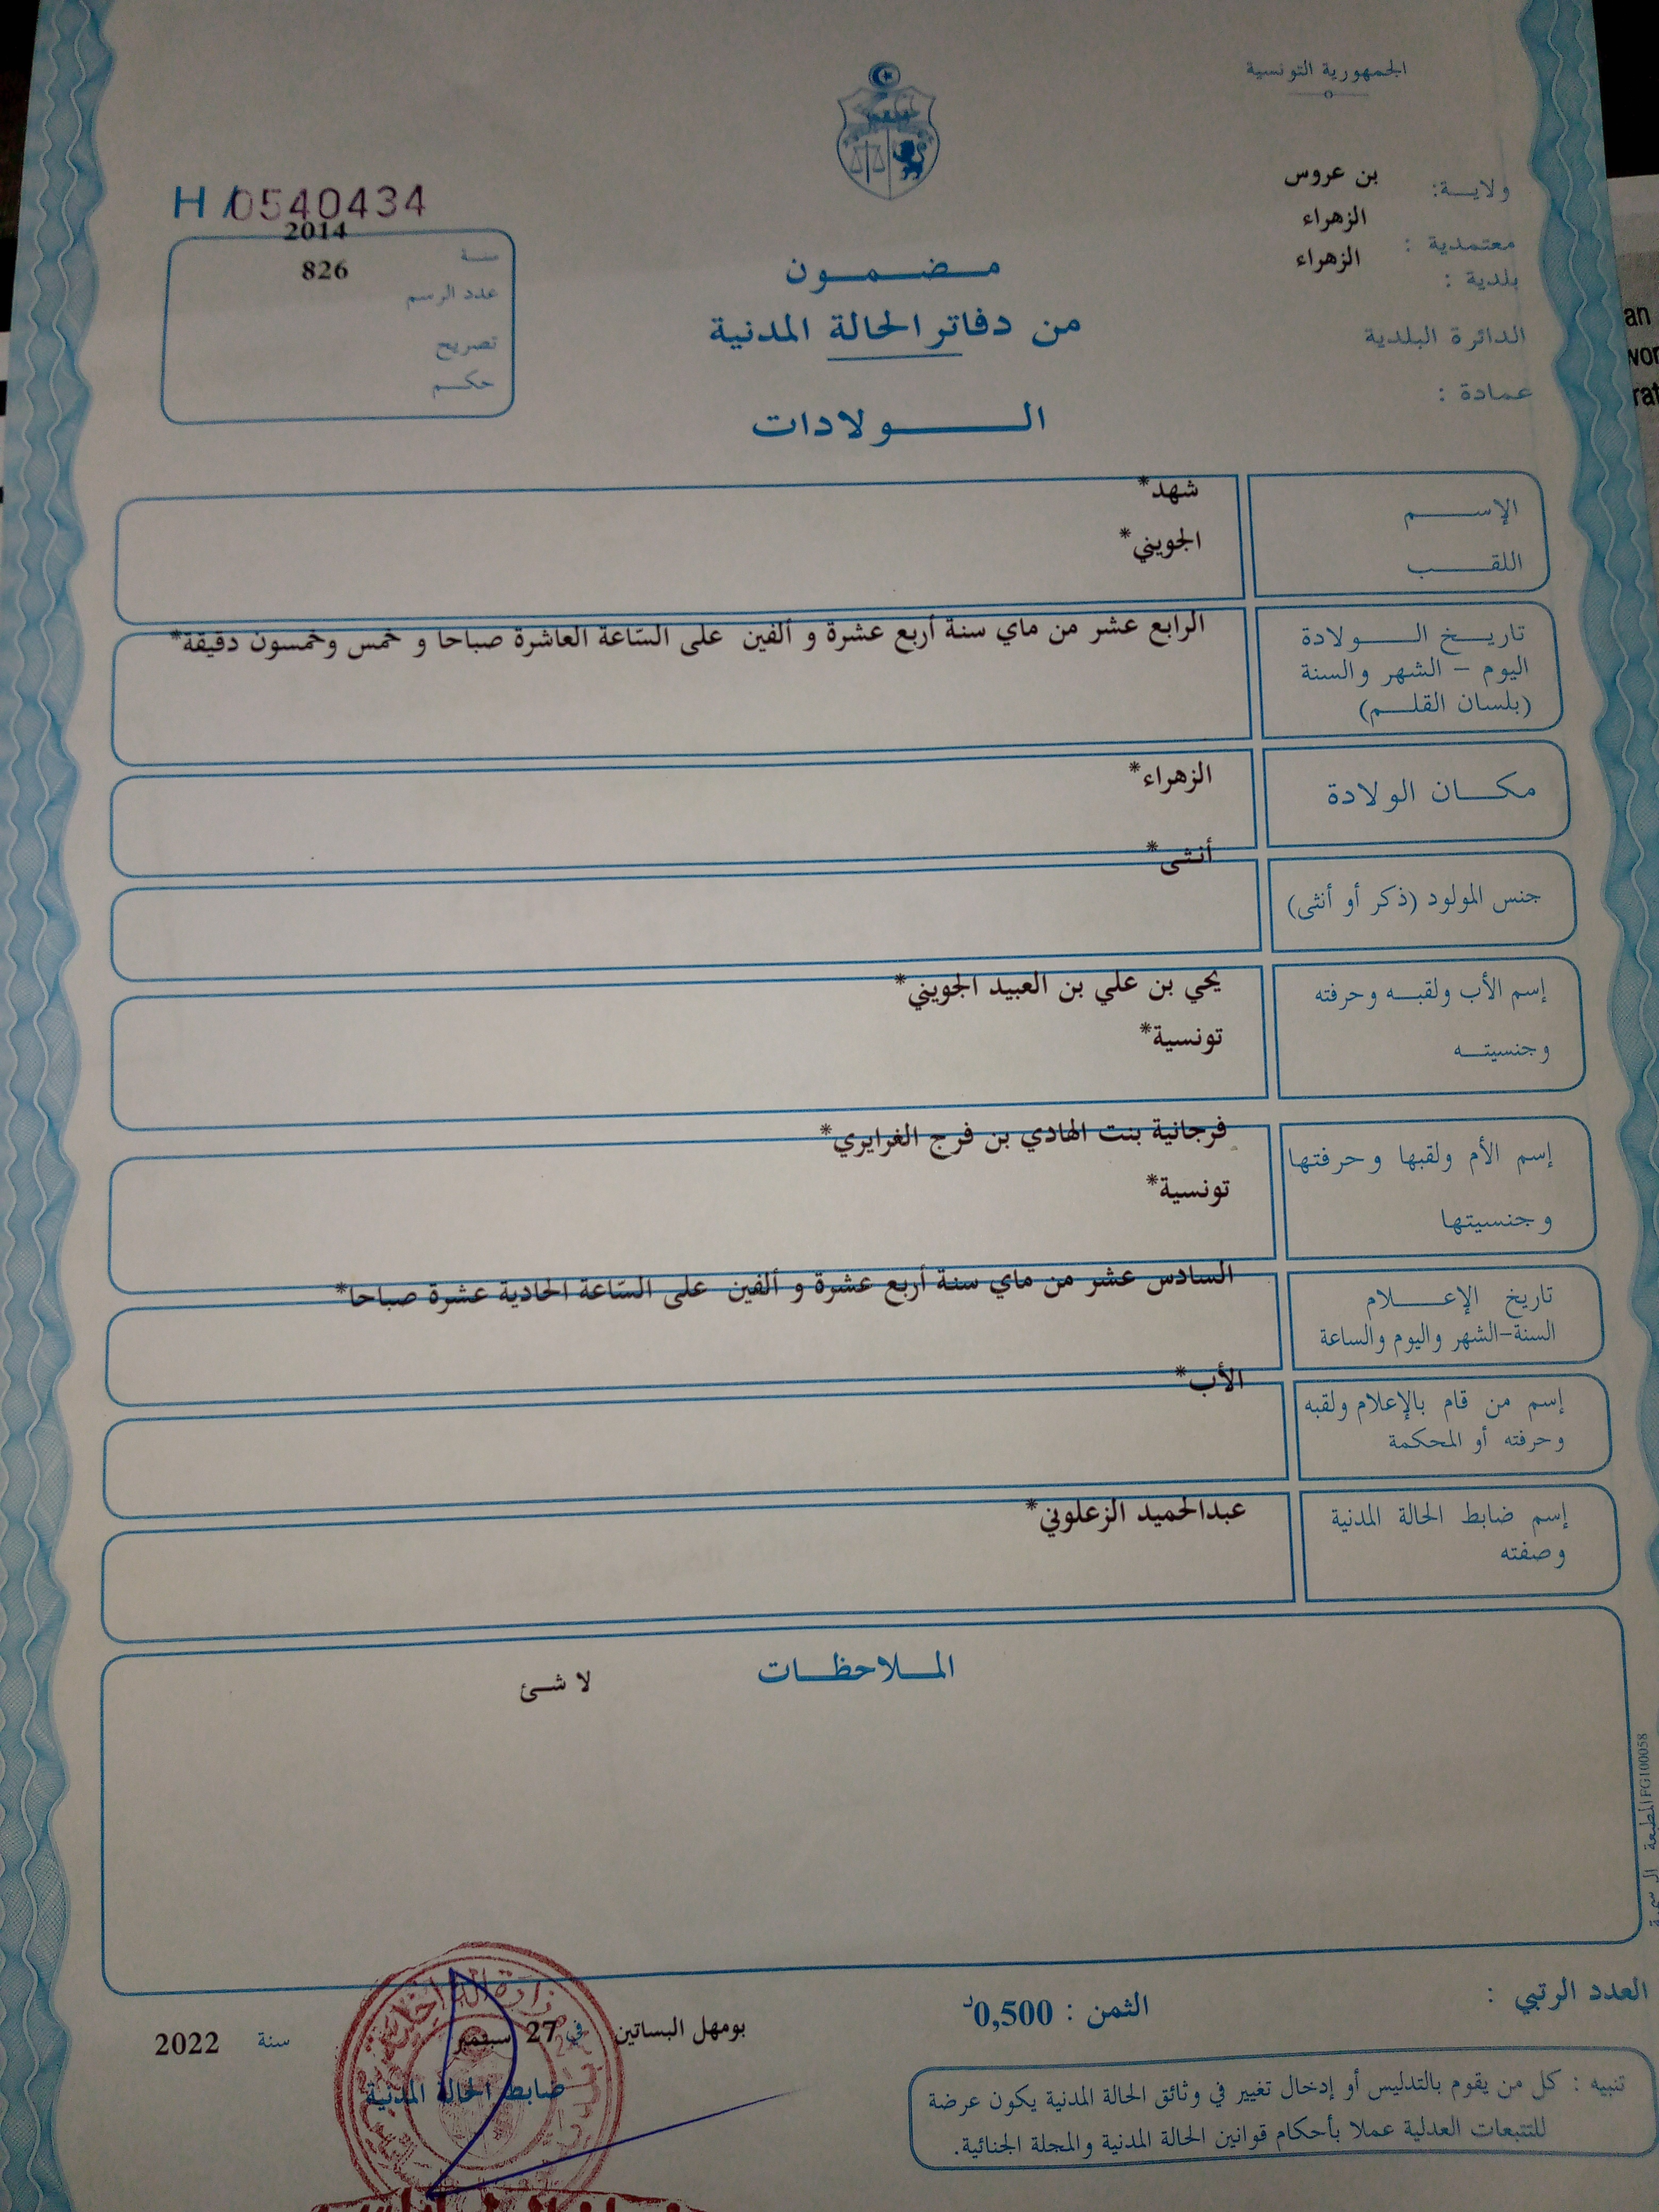 الجمهورية التونسية
ولايـــة: بن عروس
معتمدية : الزهراء
بلدية : الزهراء
الدائرة البلدية
عمادة :
H/0540434
سنـــة 2014
عدد الرسم 826
تصريح
حكـــم
مـــضـــمـــون
من دفاتر الحالة المدنية
الـــــولادات
الإســـــم شهد*
اللقـــــب الجويني*
تاريـــخ الـــــولادة الرابع عشر من ماي سنة أربع عشرة و ألفين على السّاعة العاشرة صباحا و خمس وخمسون دقيقة*
اليوم – الشهر والسنة
(بلسان القلـــم)
مكـــان الولادة الزهراء*
جنس المولود (ذكر أو أنثى) أنثى*
إسم الأب ولقبـــه وحرفته يحي بن علي بن العبيد الجويني*
وجنسيتـــه تونسية*
إسم الأم ولقبها وحرفتها فرجانية بنت الهادي بن فرج الغرايري*
وجنسيتها تونسية*
تاريخ الإعـــــلام السادس عشر من ماي سنة أربع عشرة و ألفين على السّاعة الحادية عشرة صباحا*
السنة-الشهر واليوم والساعة
إسم من قام بالإعلام ولقبه الأب*
وحرفته أو المحكمة
إسم ضابط الحالة المدنية عبدالحميد الزعلوني*
وصفته
المـــلاحظـــات
لا شئ
المطبعة الرسمية FG100058
العدد الرتبي :
الثمن : 0,500د
بومهل البساتين في 27 سبتمبر سنة 2022
ضابط الحالة المدنية
تنبيه : كل من يقوم بالتدليس أو إدخال تغيير في وثائق الحالة المدنية يكون عرضة
للتتبعات العدلية عملا بأحكام قوانين الحالة المدنية والمجلة الجنائية.